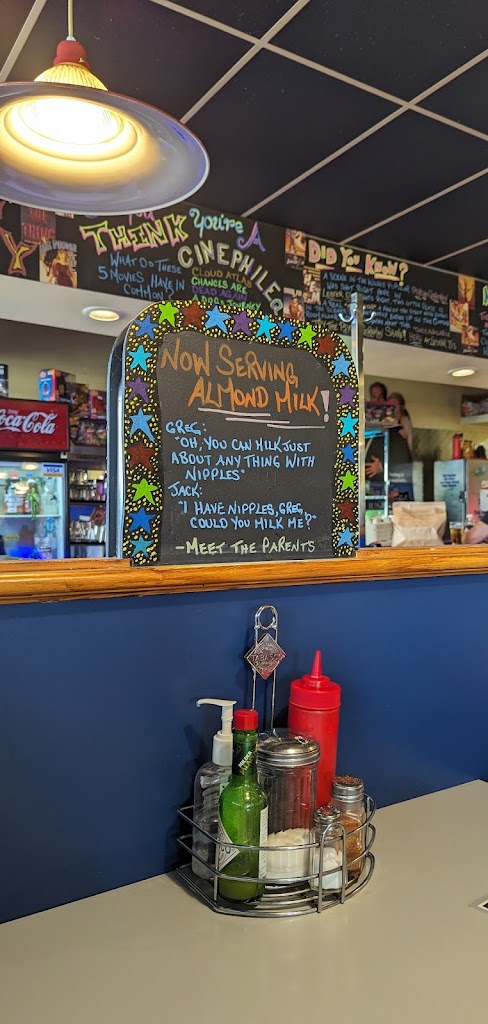 THINK
You're A
CINEPHILE?
WHAT DO THESE
5 MOVIES HAVE IN
COMMON?
CLOUD ATLAS
CHANCES ARE
DEAD AGAIN
A DOG'S JOURNEY
DID YOU KNOW?
Coca-Cola
VISA
NOW SERVING
ALMOND MILK!
GREG:
"OH, YOU CAN MILK JUST
ABOUT ANY THING WITH
NIPPLES"
JACK:
"I HAVE NIPPLES, GREG,
COULD YOU MILK ME?"
-MEET THE PARENTS
TABASCO